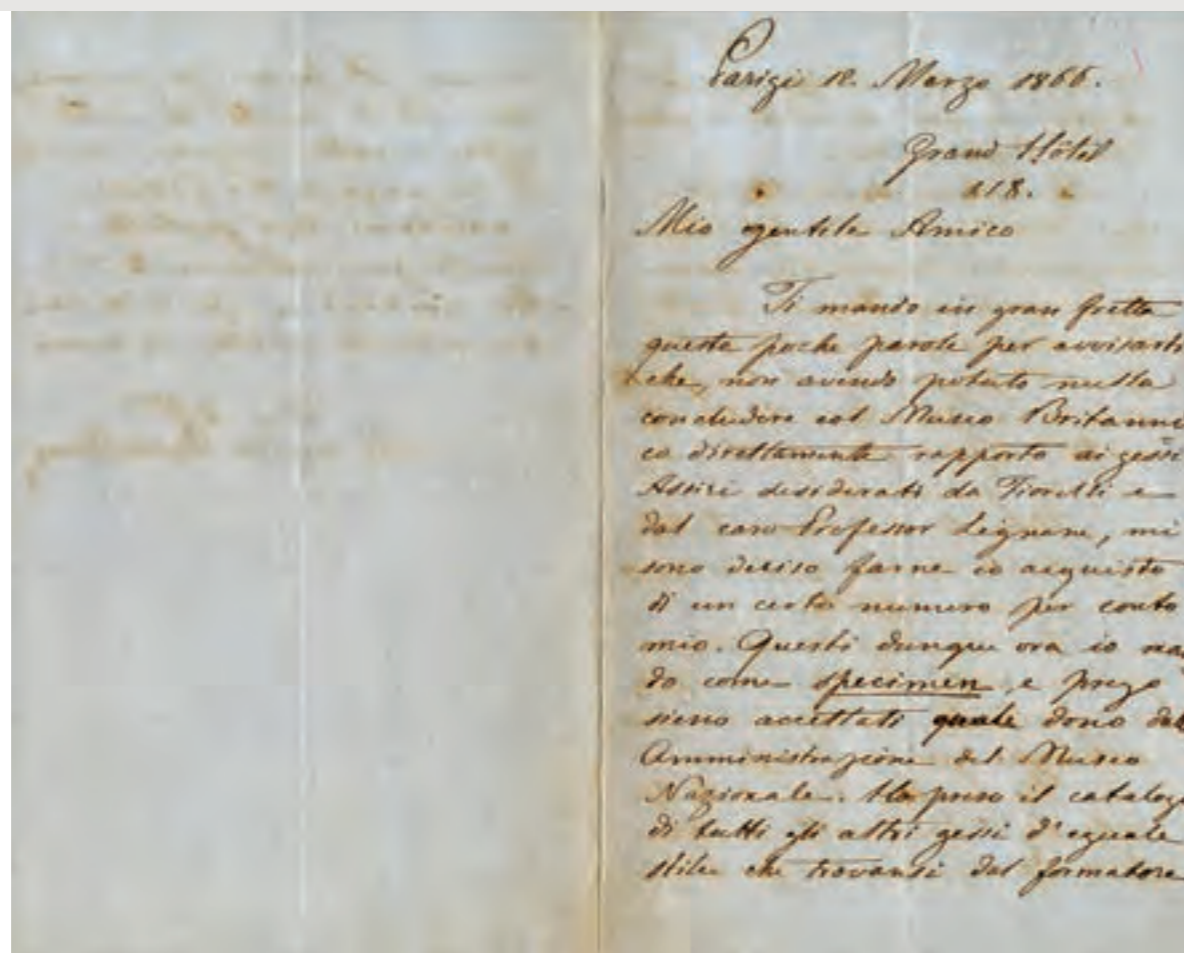 Parigi 12. Marzo 1866.
Grand Hôtel
218.
Mio gentile Amico
Ti mando in gran fretta
queste poche parole per avvisarti
che, non avendo potuto nulla
concludere col Museo Britanni
co direttamente rapporto ai gessi
Assiri desiderati da Fiorelli e
dal caro Professor Lignana, mi
sono deciso farne io acquisto
di un certo numero per conto
mio. Questi dunque ora io man
do come specimen, e prego
sieno accettati quale dono dall
Amministrazione del Museo
Nazionale. Ho preso il catalogo
di tutti gli altri gessi d'eguale
stile che trovansi dal formatore